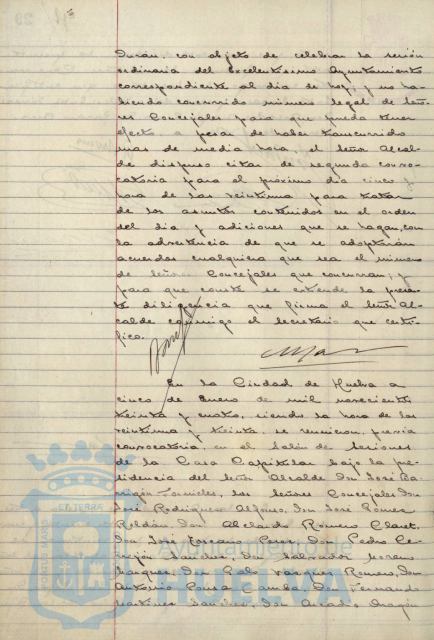 Durán, con objeto de celebrar la sesión
ordinaria del Excelentísimo Ayuntamiento
correspondiente al día de hoy, y no ha-
biendo concurrido número legal de Seño-
res Concejales para que pueda tener
efecto, a pesar de haber transcurrido
mas de media hora, el Señor Alcal-
de dispuso citar de segunda convo-
catoria para el próximo día cinco y
hora de las veintiuna para tratar
de los asuntos contenidos en el orden
del día y adiciones que se hagan, con
la advertencia de que se adoptarán
acuerdos cualquiera que sea el número
de Señores Concejales que concurran; y
para que conste se extiende la presen-
te diligencia que firma el Señor Al-
calde conmigo el Secretario que certi-
fico.
En la Ciudad de Huelva a
cinco de Enero de mil novecientos
treinta y cuatro, siendo la hora de las
veintiuna y treinta, se reunieron, previa
convocatoria, en el Salón de Sesiones
de la Casa Capitular bajo la pre-
sidencia del Señor Alcalde Don José Ba-
rrigón Fornieles, los Señores Concejales Don
José Rodríguez Alfonso, Don José Ponce
Roldán, Don Abelardo Romero Claret,
Don José Toscano Pérez, Don Pedro Ce-
rrejón Sánchez, Don Salvador Moreno
Márquez, Don Vázquez Romero, Don
Antonio Ponce Don Fernando
Martínez Sánchez, Don Amado Aragón
HUELVA